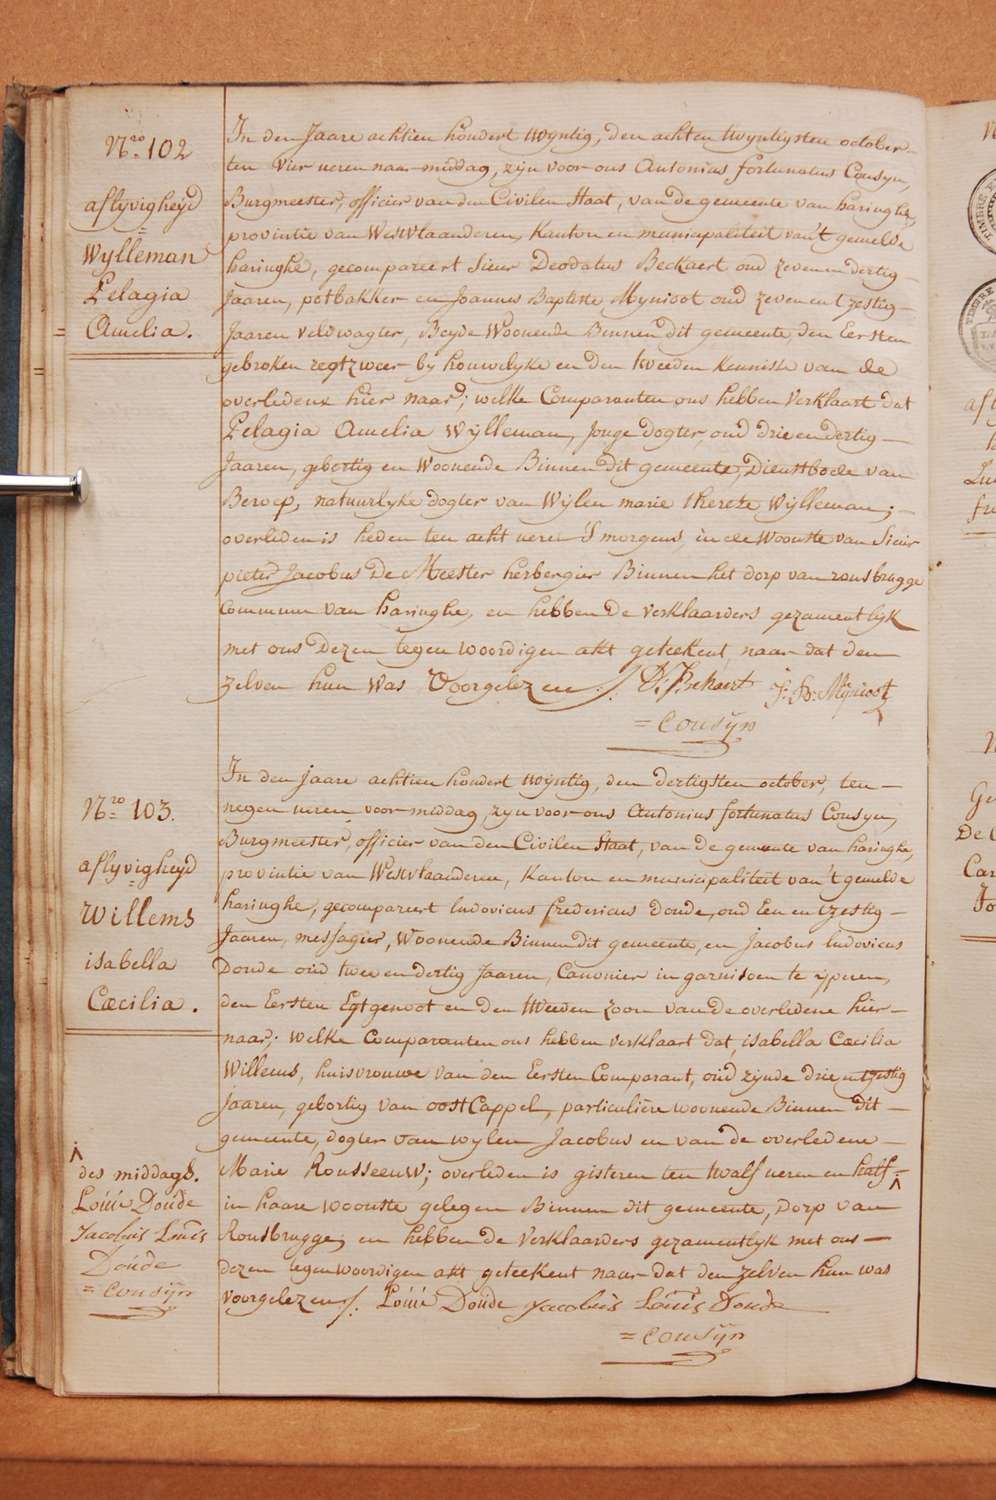 Nro 102
aflyvigheyd
=
Wylleman
Pelagia
Amelia.
In den Jaare achtien hondert twyntig, den achten twyntigsten october
ten vier ueren naar middag, zijn voor ons Antonius fortunatus Cousyn,
Burgmeester, officier van den Civilen Staat, van de gemeente van haringhe,
provintie van Westvlaanderen, Kanton en municipaliteit van't gemelde
haringhe, gecompareert Sieur Deodatus Beckaert oud zeven en dertig
Jaaren, potbakker en Joannes Baptiste Mynioot oud zeven en tzestig
Jaaren veldwagter, Beyde Woonende Binnen dit gemeente, den Eersten
gebroken regtzweer by houwelyke en den tweeden Kenniste van de
overledene hier naar; welke Comparanten ons hebben Verklaart dat
Pelagia Amelia Wylleman, Jonge dogter, oud drie en dertig
Jaaren, gebortig en Woonende Binnen dit gemeente, Dienstbode van
Beroep, natuurlyke dogter van Wylen marie thereze Wylleman;
overleden is heden ten acht ueren S'morgens, in de Woonste van Sieur
pieter Jacobus De Meester herbergier Binnen het dorp van rousbrugge
Commune van haringhe, en hebben De Verklaarders gezamentlyk
met ons Dezen tegenwoordigen akt geteekent, naar dat den
zelven hun Was Voorgelezen /. D: Bekaert J: B: Mÿnioot
= Cousÿn
Nro 103.
aflyvigheyd
=
Willems
isabella
Cæcilia.
In den jaare achtien hondert twyntig, den dertigsten october, ten
negen ueren voor middag, zijn voor ons Antonius fortunatus Cousyn,
Burgmeester, officier van den Civilen Staat, van de gemeente van haringhe,
provintie van Westvlaanderen, Kanton en municipaliteit van't gemelde
haringhe, gecompareert ludovicus fredericus Doude, oud Een en tzestig
Jaaren, messagier, Woonende Binnen dit gemeente, en Jacobus ludovicus
Doude oud twee en dertig Jaaren, Canonier in garnisoen te ijperen,
den Eersten Egtgenoot en den tweeden zoon van de overledene hier
naar; welke Comparanten ons hebben verklaart dat, isabella Cæcilia
Willems, huisvrouwe van den Eersten Comparant, oud zijnde drie en tzestig
Jaaren, gebortig van oost Cappel, particuliere woonende Binnen dit
gemeente, dogter van wylen Jacobus en van de overledene
Marie Rousseeuw; overleden is gisteren ten twalf ueren en half
in haare woonste gelegen Binnen dit gemeente, Dorp van
Rousbrugge, en hebben de Verklaarders gezamentlyk met ons
dezen tegenwoordigen akt geteekent naar dat den zelven hun was
voorgelezen /. Loüis Doüde Jacobüs Loüis Doüde
= Cousÿn
des middags.
Loüis Doüde
Jacobüs Loüis
Doüde
= Cousÿn